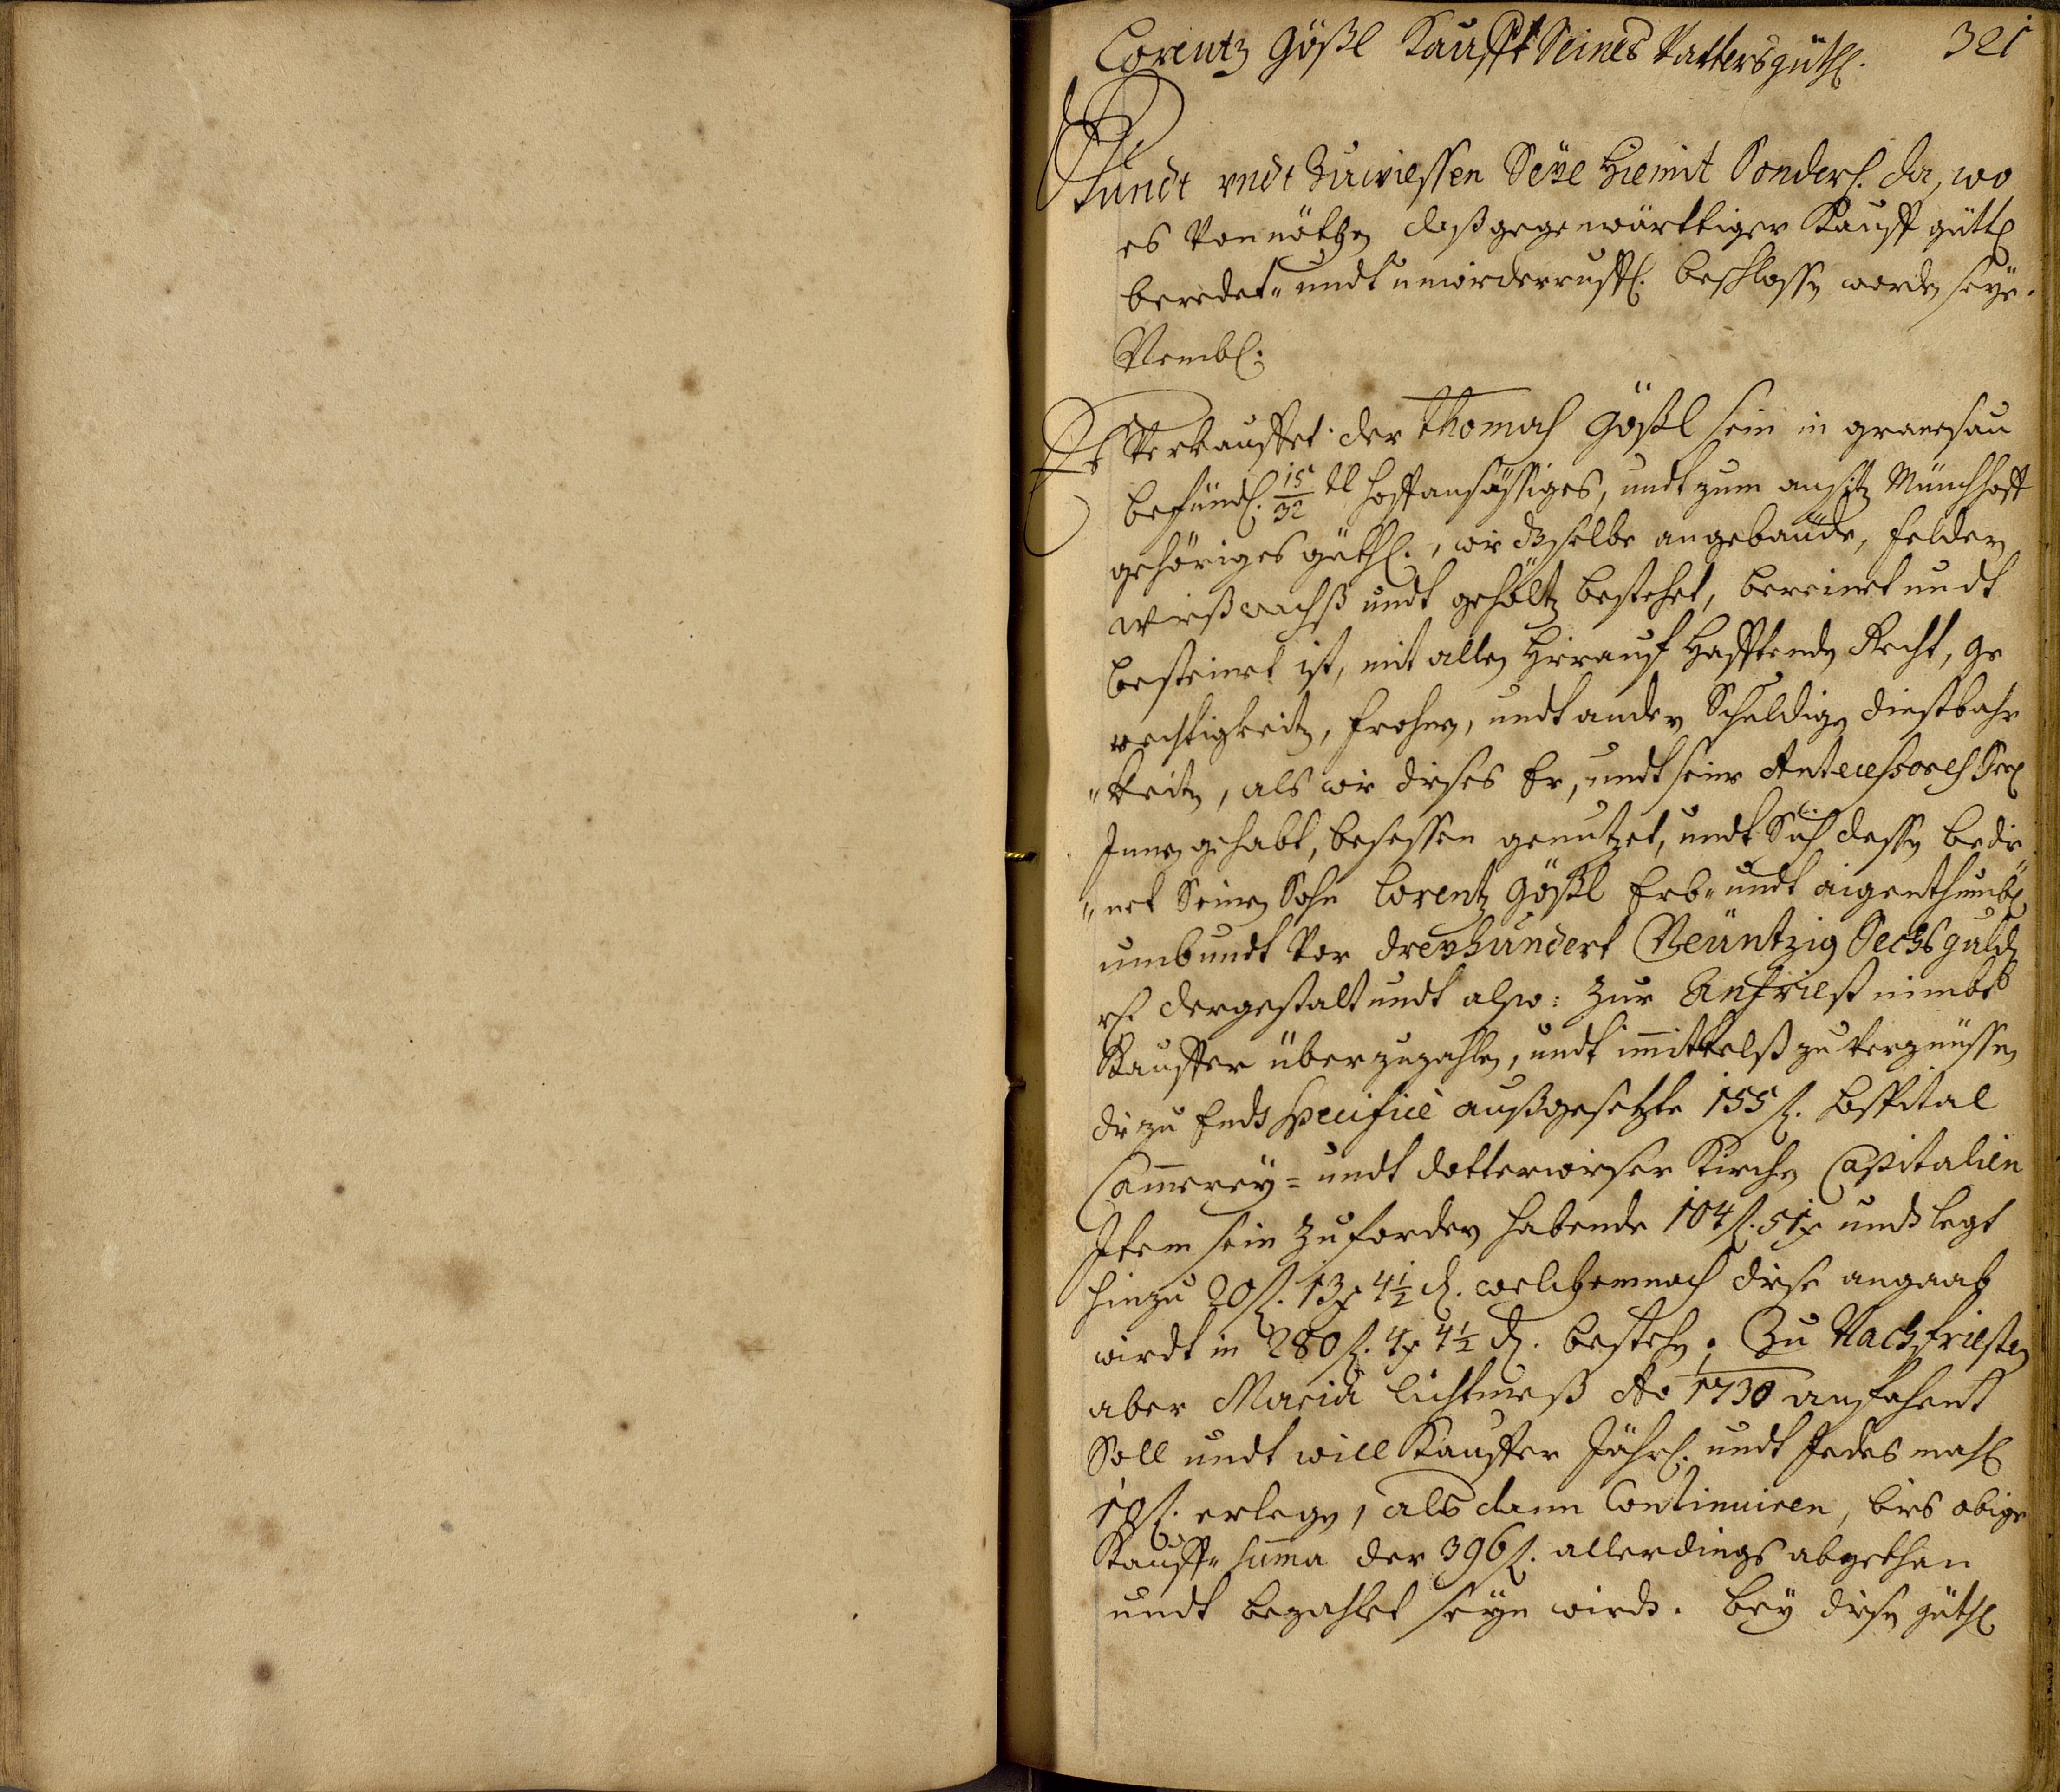 Lorentz Gößl Kaufft Seines Vatters güthl. 321
Kundt vndt Zuwiessen Seye Hiemit Sonderl. da, wo
es Vonnöthen daß gegenwärttiger Kauff güttl
beredet- undt unwiderruffl. beschlossen worden seye.
Nembl:
Es Verkauffet der Thomas Gößl sein in
befündl. 15/32 tl hoffansässiges, undt zum ansitz Münchhoff
gehöriges güthl., wie dasselbe an gebäude, feldern
wießwachß undt gehöltz bestehet, bereinet undt
besteinet ist, mit allen Hierauf Hafftenden Recht, ge
rechtigkeiten, frohnen, undt andern Schuldigen dinstbahr
"keiten, als wie dieses Er, undt seine Antecessores
Innen gehabt, besessen genutzet, undt Sich dessen bedie
"net Seinen Sohn Lorentz Gößl Erb- undt aigenthumbl.
umb undt Vor dreyhundert Neüntzig Sechs guldn
rh. dergestalt undt also: Zur Anfriest nimbt
Kauffer über zuzahlen, undt immittelß zu vergnüssen
die zu Ends specificè außgesetzte 155 fl. Hospital
Cammerey- undt dotterwieser Kirchen Capitalien
Item sein Zufordern habende 104 fl. 51 x undt legt
hinzu 20 fl. 13 x 4½ d. welchemnach diese angaab
wirdt in 280 fl. 4 x 4½ d. bestehen. Zu Nachfriesten
aber Mariä lichtmeß Ao 1730 anfahent
Soll undt will Kauffer Jährl. undt Jedes mahl
10 fl. erlegen, als dann Continuiren, bies obige
Kauff-summa der 396 fl. allerdings abgethan
undt bezahlet seyn wirdt. Bey diesen güthl